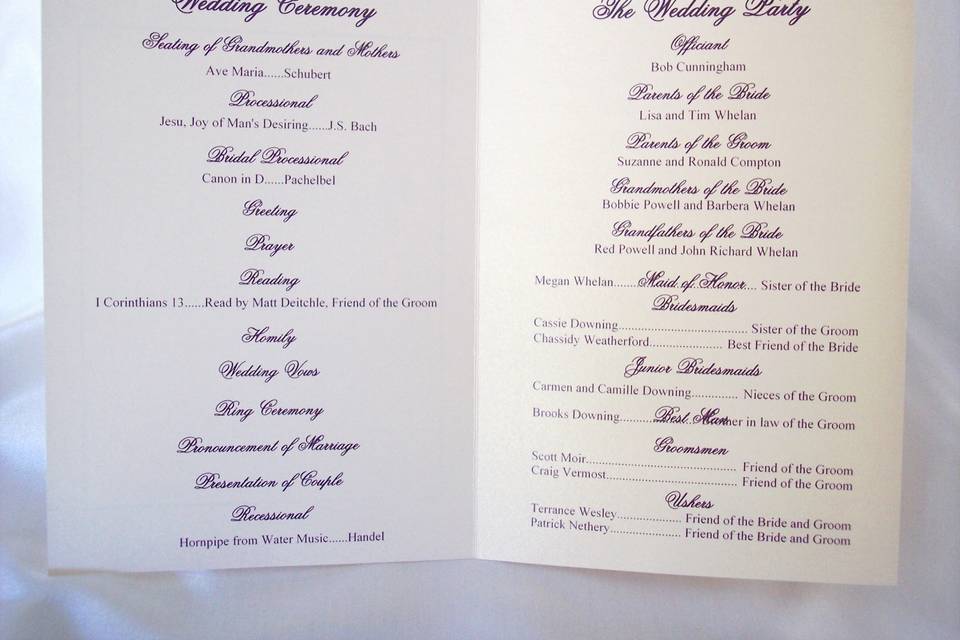 Wedding Ceremony
Seating of Grandmothers and Mothers
Ave Maria......Schubert
Processional
Jesu, Joy of Man's Desiring......J.S. Bach
Bridal Processional
Canon in D......Pachelbel
Greeting
Prayer
Reading
I Corinthians 13......Read by Matt Deitchle, Friend of the Groom
Homily
Wedding Vows
Ring Ceremony
Pronouncement of Marriage
Presentation of Couple
Recessional
Hornpipe from Water Music......Handel
The Wedding Party
Officiant
Bob Cunningham
Parents of the Bride
Lisa and Tim Whelan
Parents of the Groom
Suzanne and Ronald Compton
Grandmothers of the Bride
Bobbie Powell and Barbera Whelan
Grandfathers of the Bride
Red Powell and John Richard Whelan
Maid of Honor
Megan Whelan.......... Sister of the Bride
Bridesmaids
Cassie Downing.................................. Sister of the Groom
Chassidy Weatherford................... Best Friend of the Bride
Junior Bridesmaids
Carmen and Camille Downing............. Nieces of the Groom
Best Man
Brooks Downing.......... in law of the Groom
Groomsmen
Scott Moir........................................ Friend of the Groom
Craig Vermost................................... Friend of the Groom
Ushers
Terrance Wesley................. Friend of the Bride and Groom
Patrick Nethery................... Friend of the Bride and Groom